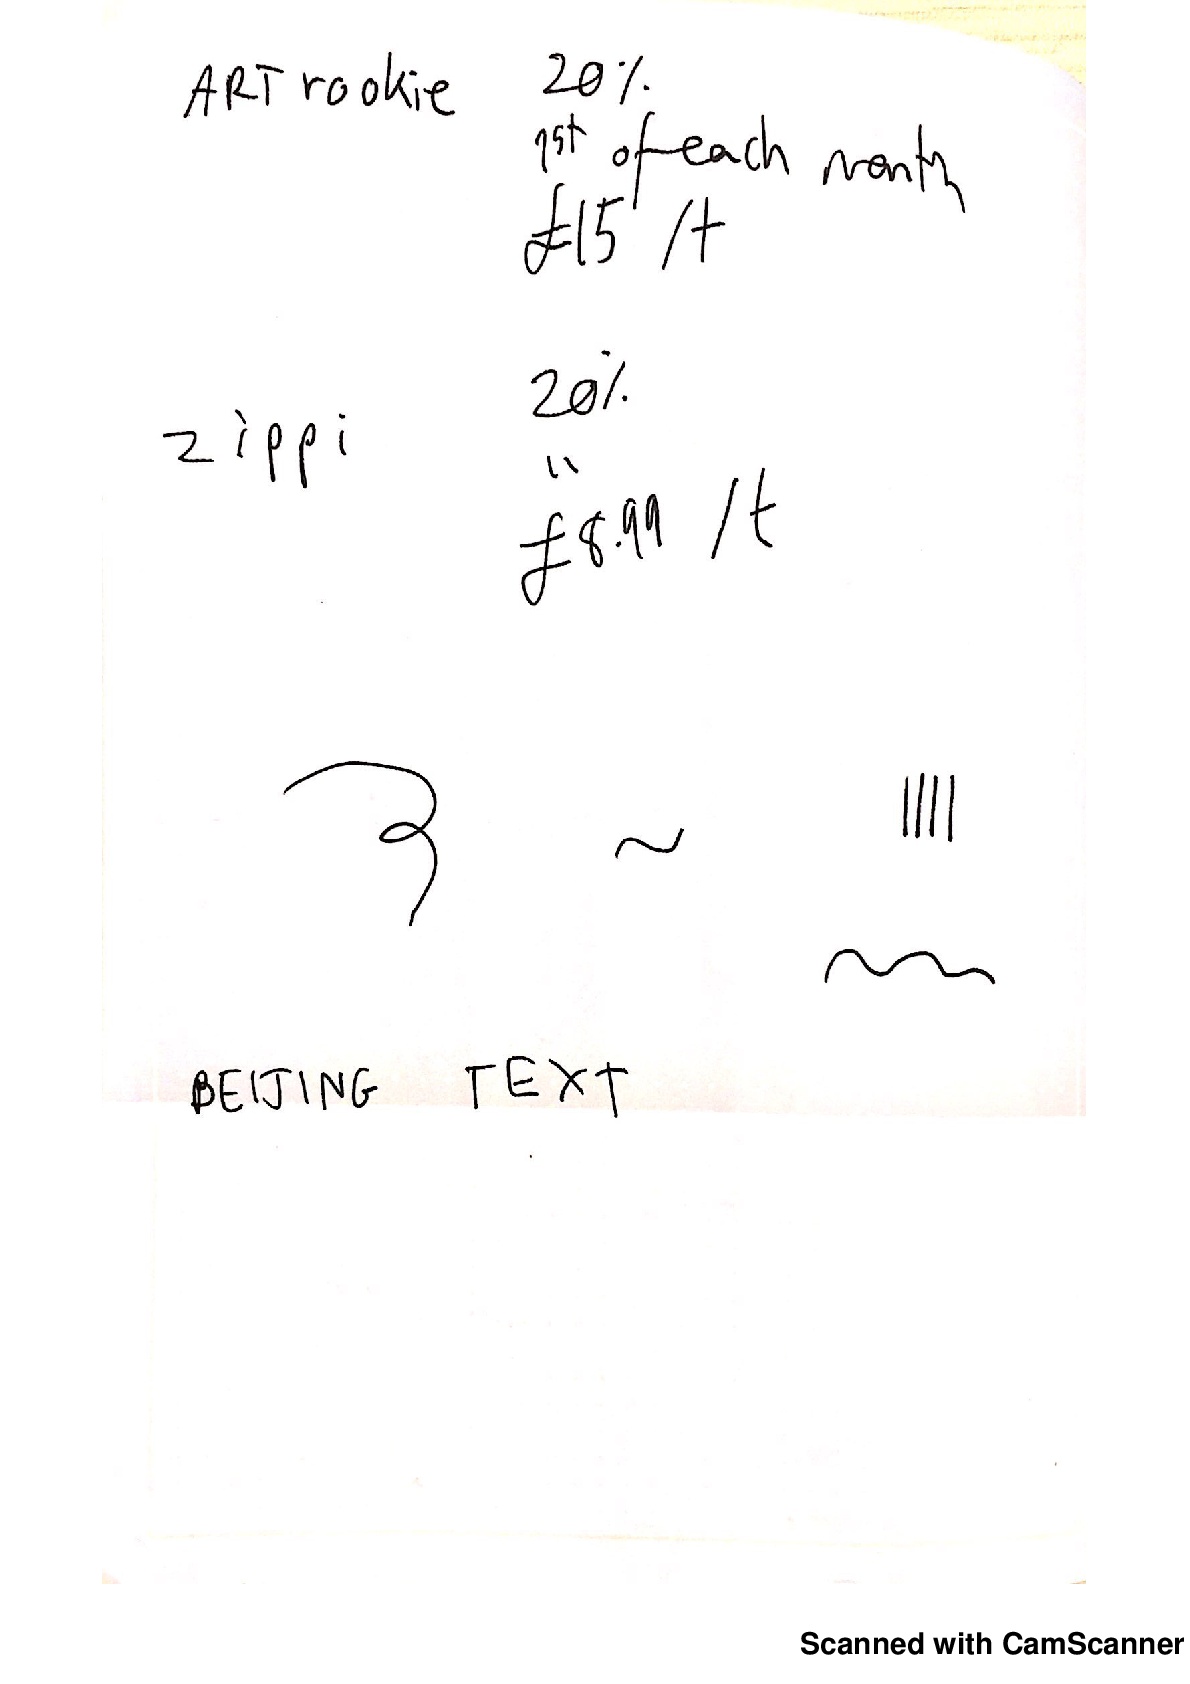 ARTrookie 20%
1st of each month
£15 /t
zippi 20%
"
£8.99 /t
BEIJING TEXT
Scanned with CamScanner